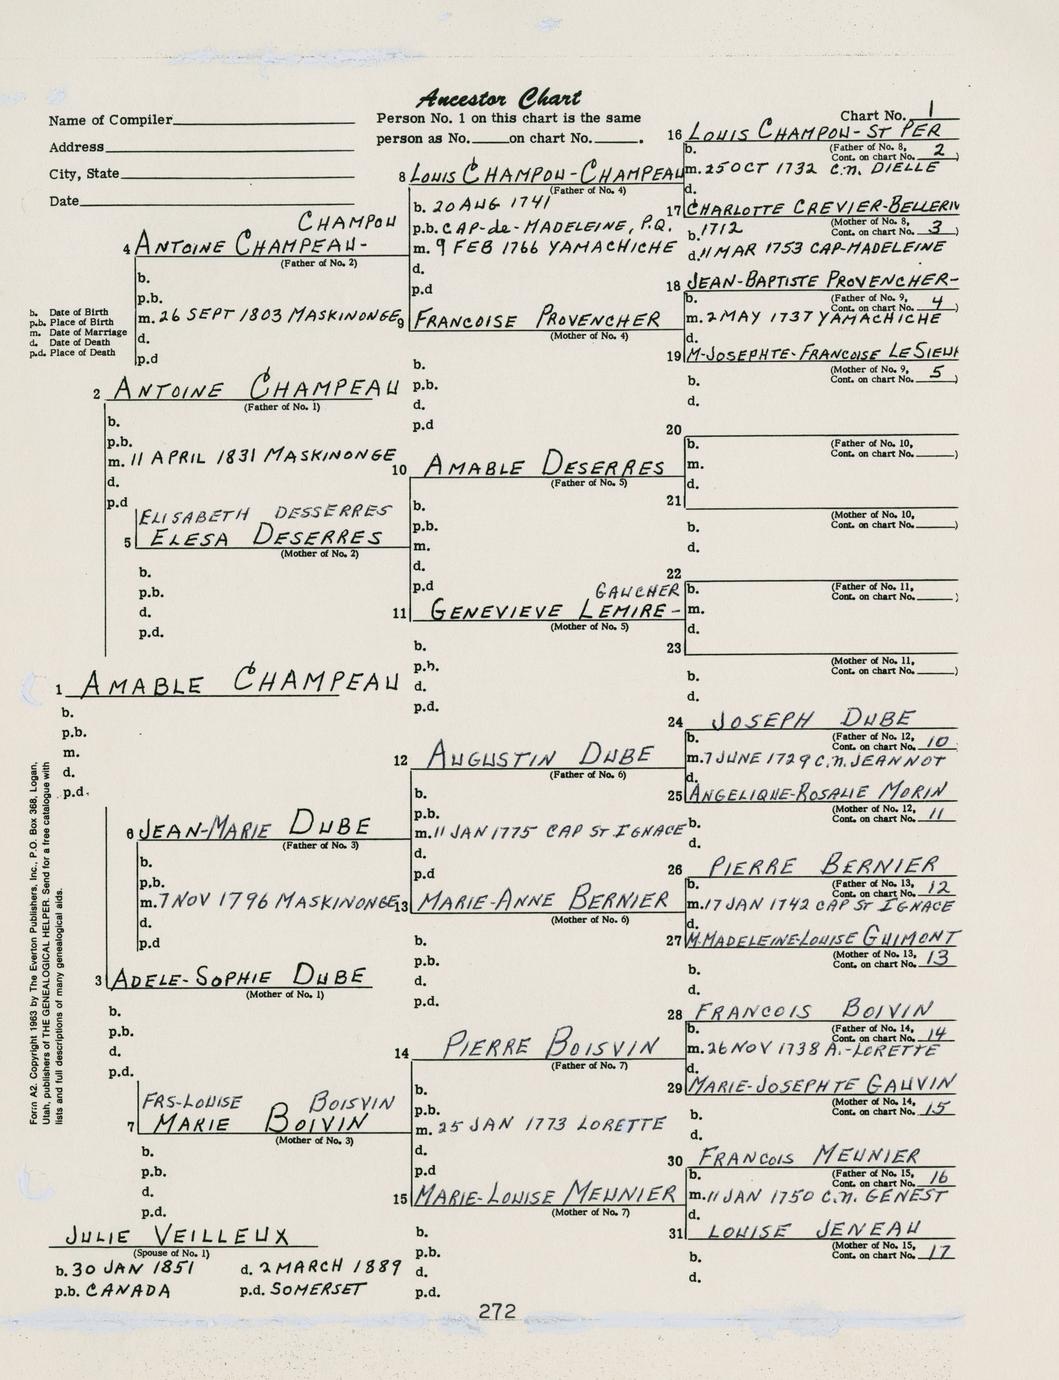 Ancestor Chart
Name of Compiler
Address
City, State
Date
Person No. 1 on this chart is the same
person as No. on chart No. .
Chart No. 1
16 LOUIS CHAMPOU-ST PER
b. (Father of No. 8, Cont. on chart No. 2)
m. 25 OCT 1732 C.N. DIELLE
d.
8 LOUIS CHAMPOU-CHAMPEAU
(Father of No. 4)
b. 20 AUG 1741
p.b. CAP-de-MADELEINE, P.Q.
m. 9 FEB 1766 YAMACHICHE
d.
p.d
17 CHARLOTTE CREVIER-BELLERIV
(Mother of No. 8, Cont. on chart No. 3)
b. 1712
d. 11 MAR 1753 CAP-MADELEINE
CHAMPOU
4 ANTOINE CHAMPEAU-
(Father of No. 2)
b.
p.b.
m. 26 SEPT 1803 MASKINONGE
d.
p.d
18 JEAN-BAPTISTE PROVENCHER-
b. (Father of No. 9, Cont. on chart No. 4)
m. 2 MAY 1737 YAMACHICHE
d.
9 FRANCOISE PROVENCHER
(Mother of No. 4)
b.
p.b.
d.
p.d
19 M-JOSEPHTE-FRANCOISE LESIEUR
(Mother of No. 9, Cont. on chart No. 5)
b.
d.
b. Date of Birth
p.b. Place of Birth
m. Date of Marriage
d. Date of Death
p.d. Place of Death
2 ANTOINE CHAMPEAU
(Father of No. 1)
b.
p.b.
m. 11 APRIL 1831 MASKINONGE
d.
p.d
20
b. (Father of No. 10, Cont. on chart No. )
m.
d.
10 AMABLE DESERRES
(Father of No. 5)
b.
p.b.
m.
d.
p.d
21
(Mother of No. 10, Cont. on chart No. )
b.
d.
ELISABETH DESSERRES
5 ELESA DESERRES
(Mother of No. 2)
b.
p.b.
d.
p.d.
22
b. (Father of No. 11, Cont. on chart No. )
m.
d.
GAUCHER
11 GENEVIEVE LEMIRE-
(Mother of No. 5)
b.
p.b.
d.
p.d.
23
(Mother of No. 11, Cont. on chart No. )
b.
d.
1 AMABLE CHAMPEAU
b.
p.b.
m.
d.
p.d.
24 JOSEPH DUBE
b. (Father of No. 12, Cont. on chart No. 10
m. 7 JUNE 1729 C.N. JEANNOT
d.
12 AUGUSTIN DUBE
(Father of No. 6)
b.
p.b.
m. 11 JAN 1775 CAP ST IGNACE
d.
p.d
25 ANGELIQUE-ROSALIE MORIN
(Mother of No. 12, Cont. on chart No. 11
b.
d.
6 JEAN-MARIE DUBE
(Father of No. 3)
b.
p.b.
m. 7 NOV 1796 MASKINONGE
d.
p.d
26 PIERRE BERNIER
b. (Father of No. 13, Cont. on chart No. 12
m. 17 JAN 1742 CAP ST IGNACE
d.
13 MARIE-ANNE BERNIER
(Mother of No. 6)
b.
p.b.
d.
p.d.
27 M-MADELEINE-LOUISE GUIMONT
(Mother of No. 13, Cont. on chart No. 13
b.
d.
3 ADELE-SOPHIE DUBE
(Mother of No. 1)
b.
p.b.
d.
p.d.
28 FRANCOIS BOIVIN
b. (Father of No. 14, Cont. on chart No. 14
m. 26 NOV 1738 A.-LORETTE
d.
14 PIERRE BOISVIN
(Father of No. 7)
b.
p.b.
m. 25 JAN 1773 LORETTE
d.
p.d
29 MARIE-JOSEPHTE GAUVIN
(Mother of No. 14, Cont. on chart No. 15
b.
d.
FRS-LOUISE BOISVIN
7 MARIE BOIVIN
(Mother of No. 3)
b.
p.b.
d.
p.d.
30 FRANCOIS MEUNIER
b. (Father of No. 15, Cont. on chart No. 16
m. 11 JAN 1750 C.N. GENEST
d.
15 MARIE-LOUISE MEUNIER
(Mother of No. 7)
b.
p.b.
d.
p.d.
31 LOUISE JENEAU
(Mother of No. 15, Cont. on chart No. 17
b.
d.
JULIE VEILLEUX
(Spouse of No. 1)
b. 30 JAN 1851 d. 2 MARCH 1889
p.b. CANADA p.d. SOMERSET
Form A2. Copyright 1963 by The Everton Publishers, Inc., P.O. Box 368, Logan,
Utah, publishers of THE GENEALOGICAL HELPER. Send for a free catalogue with
lists and full descriptions of many genealogical aids.
272